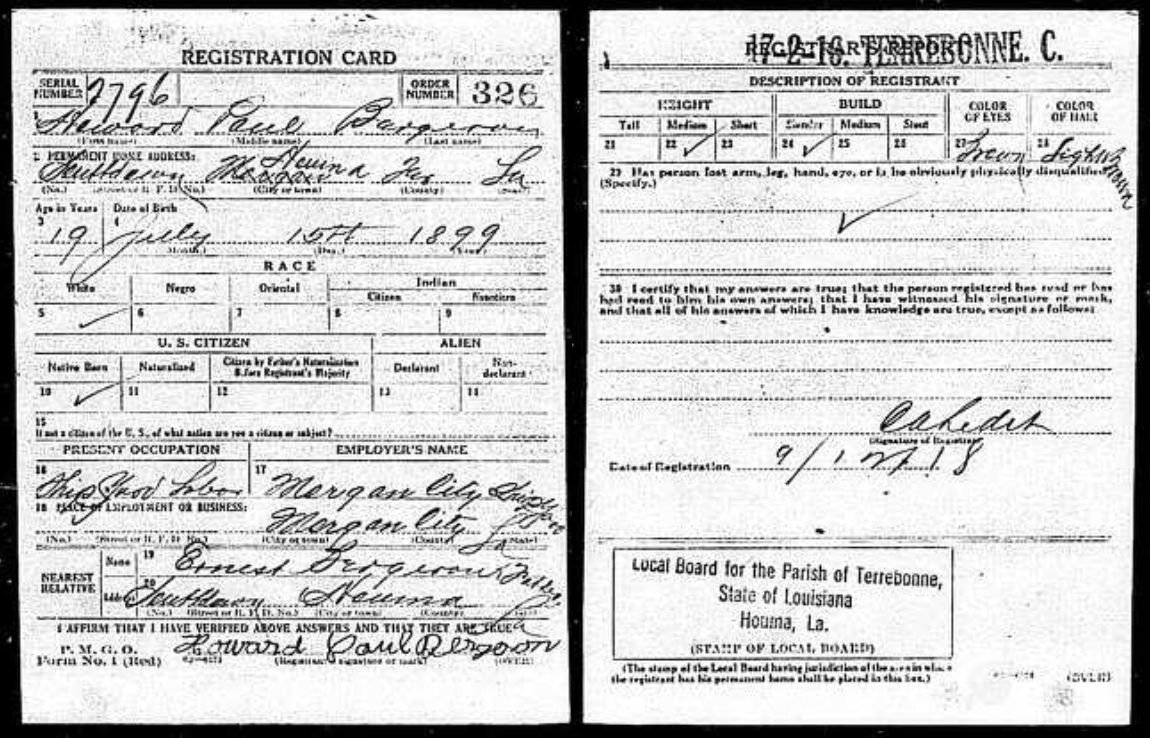 REGISTRATION CARD
SERIAL NUMBER 2796 ORDER NUMBER 326
1 Howard Paul Bargeron
(First name) (Middle name) (Last name)
2 PERMANENT HOME ADDRESS:
Southdown Houma Ter La
(No.) (Street or R. F. D. No.) (City or town) (County) (State)
Age in Years Date of Birth
3 4
19 July 15th 1899
(Month.) (Day.) (Year.)
RACE
White Negro Oriental Indian
Citizen Noncitizen
5 ✓ 6 7 8 9
U. S. CITIZEN ALIEN
Native Born Naturalized Citizen by Father's Naturalization Before Registrant's Majority Declarant Non-declarant
10 ✓ 11 12 13 14
15
If not a citizen of the U. S., of what nation are you a citizen or subject?
PRESENT OCCUPATION EMPLOYER'S NAME
16 17
Ship Yard Labor Morgan City
18 PLACE OF EMPLOYMENT OR BUSINESS:
Morgan City La
(No.) (Street or R. F. D. No.) (City or town) (County) (State)
NEAREST RELATIVE
Name 19 Ernest Bergeron Father
Address 20 Southdown Houma La
(No.) (Street or R. F. D. No.) (City or town) (County) (State)
I AFFIRM THAT I HAVE VERIFIED ABOVE ANSWERS AND THAT THEY ARE TRUE
P. M. G. O.
Form No. 1 (Red) Howard Paul Bergeron
(Registrant's signature or mark) (OVER)
REGISTRAR'S REPORT
17-2-16. TERREBONNE. C.
DESCRIPTION OF REGISTRANT
HEIGHT BUILD COLOR OF EYES COLOR OF HAIR
Tall Medium Short Slender Medium Stout
21 22 ✓ 23 24 ✓ 25 26 27 Brown 28 Light Brown
29 Has person lost arm, leg, hand, eye, or is he obviously physically disqualified?
(Specify.)
✓
30 I certify that my answers are true; that the person registered has read or has
had read to him his own answers; that I have witnessed his signature or mark,
and that all of his answers of which I have knowledge are true, except as follows:
(Signature of Registrar)
Date of Registration 9/12/18
Local Board for the Parish of Terrebonne,
State of Louisiana
Houma, La.
(STAMP OF LOCAL BOARD)
(The stamp of the Local Board having jurisdiction of the area in which
the registrant has his permanent home shall be placed in this box.)
(OVER)